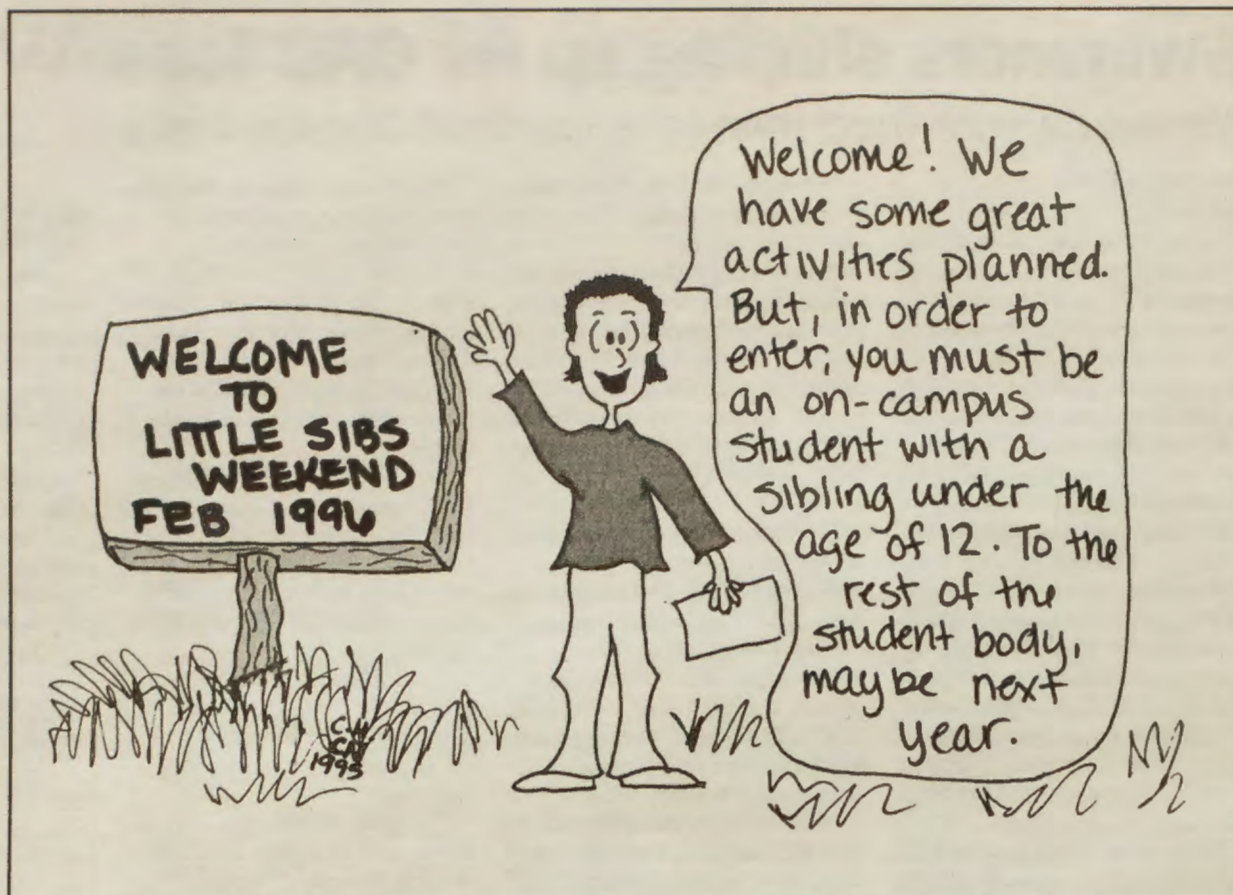 WELCOME
TO
LITTLE SIBS
WEEKEND
FEB 1996
Welcome! We
have some great
activities planned.
But, in order to
enter, you must be
an on-campus
student with a
sibling under the
age of 12. To the
rest of the
student body,
maybe next
year.
1995